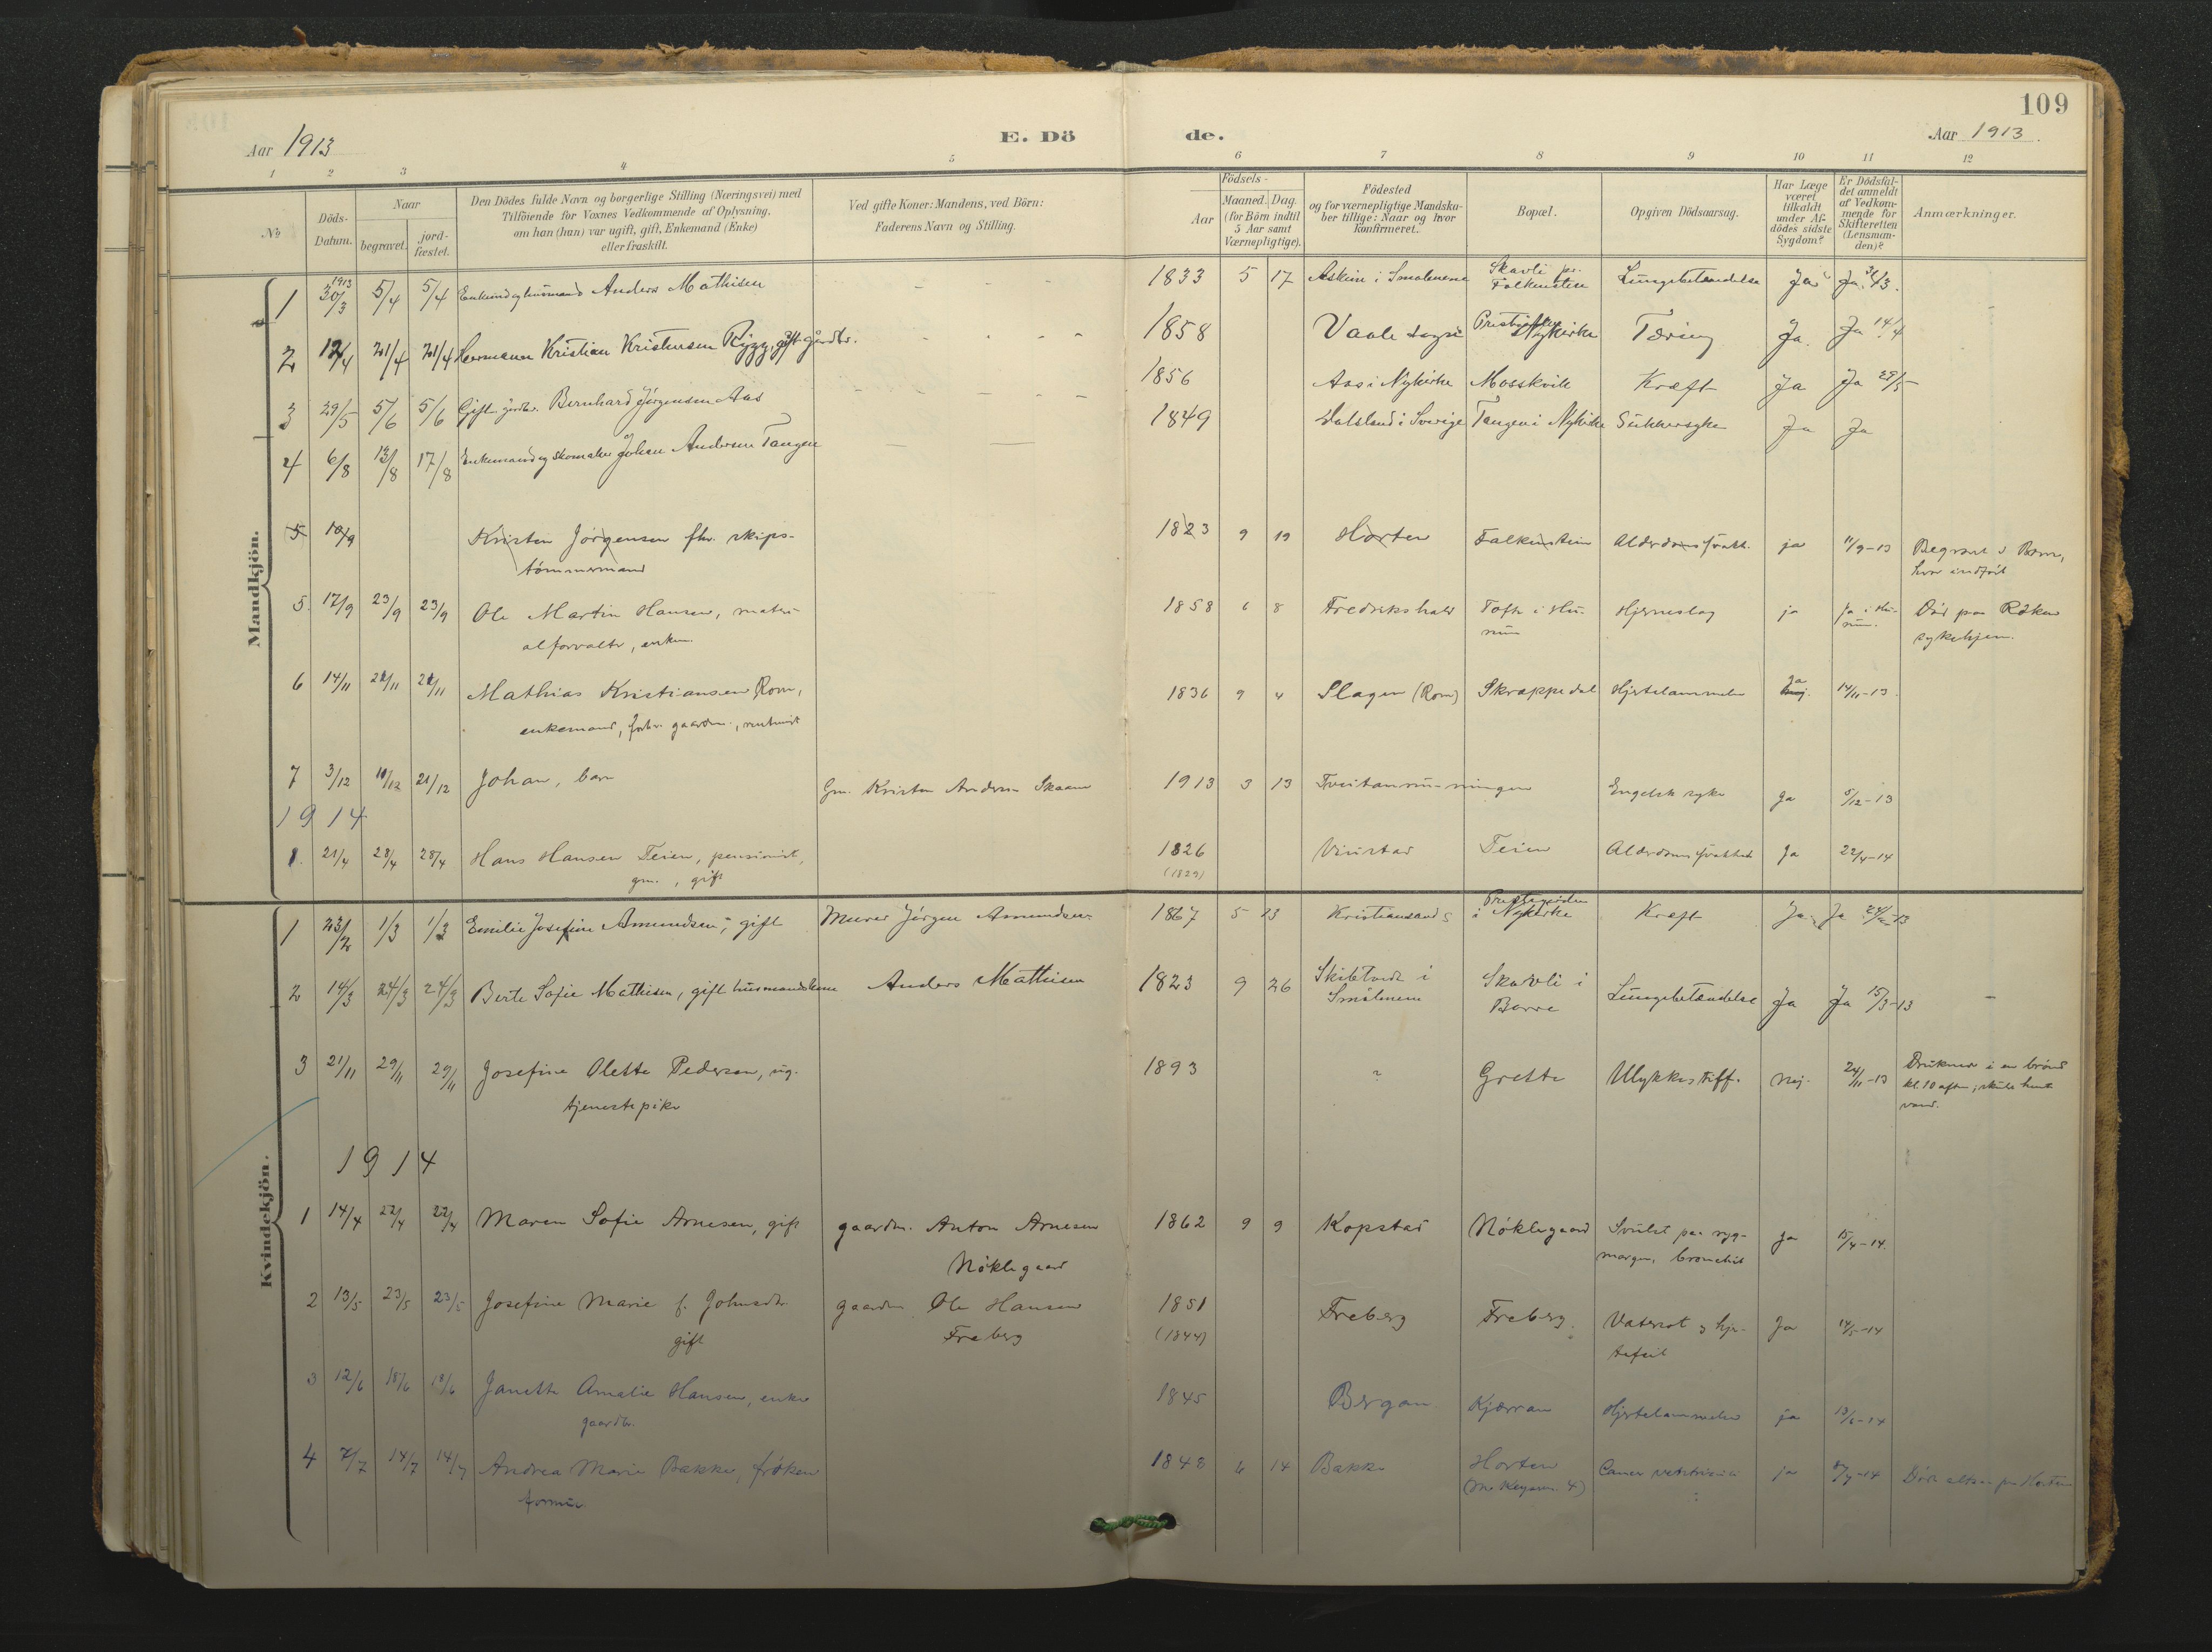 109
Aar 1913
E. Dö de.
Aar 1913.
1 2 3 4 5 6 7 8 9 10 11 12
No
Döds-Datum.
Naar
begravet.
jord-fæstet.
Den Dödes fulde Navn og borgerlige Stilling (Næringsvei) med
Tilföiende for Voxnes Vedkommende af Oplysning,
om han (hun) var ugift, gift, Enkemand (Enke)
eller fraskilt.
Ved gifte Koner: Mandens, ved Börn:
Faderens Navn og Stilling.
Födsels-
Aar
Maaned. Dag.
(for Börn indtil
5 Aar samt
Værnepligtige).
Födested
og for værnepligtige Mandska-
ber tillige: Naar og hvor
konfirmeret.
Bopæl.
Opgiven Dödsaarsag.
Har Læge
været
tilkaldt
under Af-
dödes sidste
Sygdom?
Er Dödsfal-
det anmeldt
af Vedkom-
mende for
Skifteretten
(Lensman-
den)?
Anmærkninger.
Mandkjön.
1 1913 30/3 5/4 5/4 Enkemand og husmand Anders Mathisen - - - 1833 5 17 Askim i Smalenene Skavli Falkensten Lungebetændelse Ja Ja 31/3.
2 12/4 21/4 21/4 Hermann Kristian Kristensen Rygg, gift gårdbr. - - - 1858 Vaale sogn Nykirke Tæring Ja. Ja 14/4
3 29/5 5/6 5/6 Gift gårdbr. Bernhard Jörgensen Aas - - - 1856 Aas i Nykirke Mosskvik Kræft Ja Ja 29/5
4 6/8 13/8 17/8 Enkemand og skomaker Johan Andersen Tangen — — 1849 Dalsland i Sverige Tangen i Nykirke Sukkersyke Ja Ja
5 10/9 Kristen Jörgensen fhv. skips-
tömmermand
1823 9 19 Horten Falkensten Alderdomssvakh. ja 11/9-13 Begravet i Borre,
hvor indfört
5. 17/9 23/9 23/9 Ole Martin Hansen, materi-
alforvalter, enkem.
1858 6 8 Fredrikshald Tofte i Hu-
rum
Hjerneslag ja Ja i Hu-
rum.
Död paa Röken
sykehjem.
6 14/11 21/11 21/11 Mathias Kristiansen Rom,
enkemand, forhv. gaardm., rentenist
1836 9 4 Slagen (Rom) Skrappedal Hjertelammelse Ja 14/11-13.
7 3/12 10/12 21/12 Johan, barn Gm. Kristen Andersen Skaane 1913 3 13 Tveitanrunningen Engelsk syke Ja 5/12-13
1914
1. 21/4 28/4 28/4 Hans Hansen Teien, pensionist,
gm., gift
1826
(1829)
Teien Alderdomssvakhet Ja 22/4-14
Kvindekjön.
1 23/2 1/3 1/3 Emilie Josefine Amundsen, gift Murer Jörgen Amundsen 1867 5 13 Kristiansand S Prestegården
i Nykirke
Kræft Ja. Ja 24/2-13
2 14/3 24/3 24/3 Berte Sofie Mathisen, gift husmandskone Anders Mathisen 1823 9 26 Skibtvedt i
Smålenene
Skavli i
Borre
Lungebetændelse Ja Ja 15/3-13 -
3 21/11 29/11 29/11 Josefine Olette Pedersen, ug.
tjenestepike
1893 ? Grette Ulykkestilf. nej. 24/11-13 Druknet i en brönd
kl. 10 aften, skulde hente
vand.
1914
1 14/4 22/4 22/4 Maren Sofie Arnesen, gift gaardm. Anton Arnesen
Nöklegaard
1862 9 9 Kopstad Nöklegaard Svulst paa ryg-
margen, bronchit
Ja 15/4-14.
2 13/5 23/5 23/5 Josefine Marie f. Johnsdtr.
gift
gaardm. Ole Hansen
Freberg
1851
(1844)
Freberg Freberg. Vatersot og hjer-
tefeil
Ja 14/5-14
3 12/6 18/6 18/6 Janette Amalie Hansen, enke
gaardbr.
1845 Bergan Kjærran Hjertelammelse ja 13/6-14
4 7/7 14/7 14/7 Andrea Marie Bakke, fröken
1848 6 14 Bakke Horten
Cancer ja 8/7-14 Döde